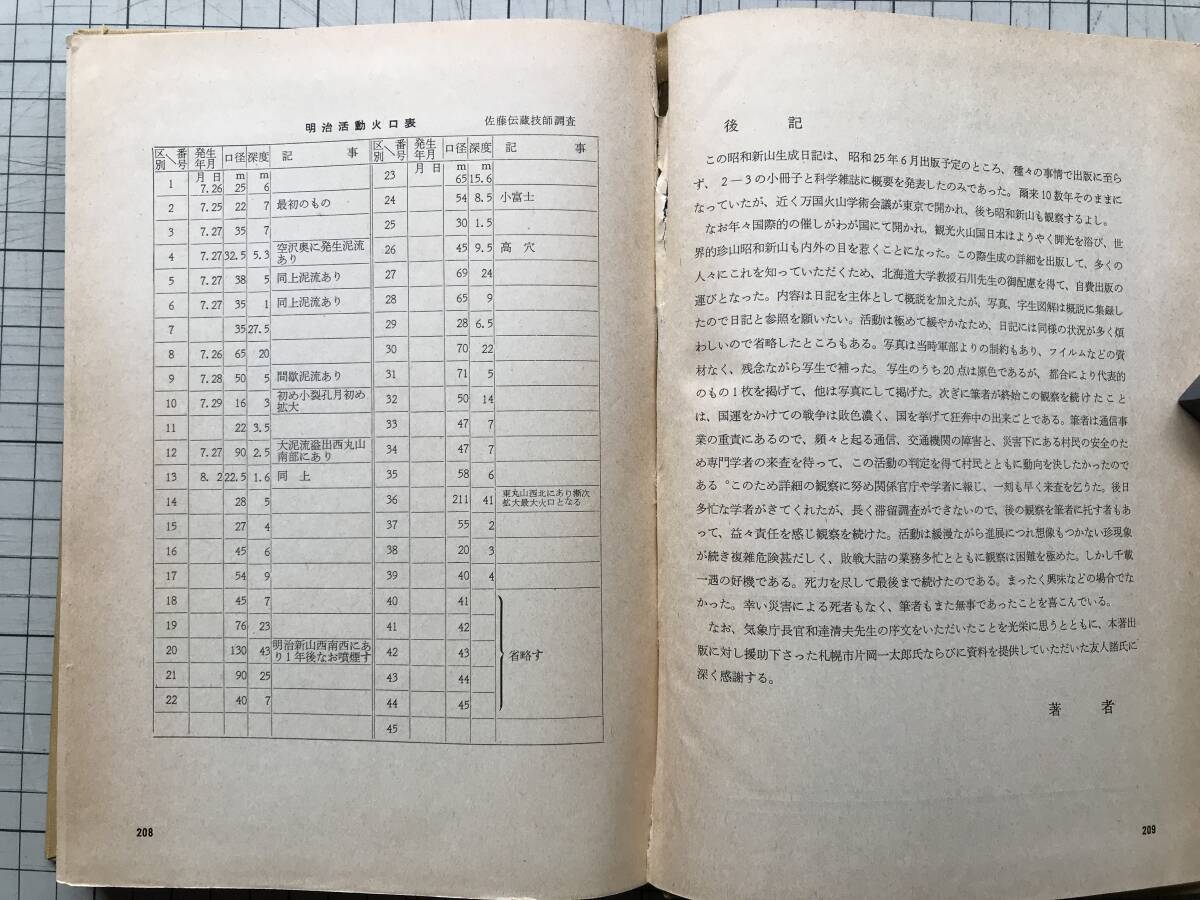 明治活動火口表 佐藤伝蔵技師調査
区別＼番号 発生年月 口径 深度 記事 区別＼番号 発生年月 口径 深度 記事
月日 m m 月日 m m
1 7.26 25 6
2 7.25 22 7 最初のもの
3 7.27 35 7
4 7.27 32.5 5.3 空沢奥に発生泥流あり
5 7.27 38 5 同上泥流あり
6 7.27 35 1 同上泥流あり
7 35 27.5
8 7.26 65 20
9 7.28 50 5 間歇泥流あり
10 7.29 16 3 初め小裂孔月初め拡大
11 22 3.5
12 7.27 90 2.5 大泥流溢出西丸山南部にあり
13 8.2 22.5 1.6 同上
14 28 5
15 27 4
16 45 6
17 54 9
18 45 7
19 76 23
20 130 43 明治新山西南西にあり1年後なお噴煙す
21 90 25
22 40 7
23 65 15.6
24 54 8.5 小富士
25 30 1.5
26 45 9.5 高穴
27 69 24
28 65 9
29 28 6.5
30 70 22
31 71 5
32 50 14
33 47 7
34 47 7
35 58 6
36 211 41 東丸山西北にあり漸次拡大最大火口となる
37 55 2
38 20 3
39 40 4
40 41
41 42
42 43 省略す
43 44
44 45
45
208
後記
この昭和新山生成日記は、昭和25年6月出版予定のところ、種々の事情で出版に至ら
ず、2―3の小冊子と科学雑誌に概要を発表したのみであった。爾来10数年そのままに
なっていたが、近く万国火山学術会議が東京で開かれ、後ち昭和新山も観察するよし。
なお年々国際的の催しがわが国にて開かれ、観光火山国日本はようやく脚光を浴び、世
界的珍山昭和新山も内外の目を惹くことになった。この際生成の詳細を出版して、多くの
人々にこれを知っていただくため、北海道大学教授石川先生の御配慮を得て、自費出版の
運びとなった。内容は日記を主体として概説を加えたが、写真、字生図解は概説に集録し
たので日記と参照を願いたい。活動は極めて緩やかなため、日記には同様の状況が多く煩
わしいので省略したところもある。写真は当時軍部よりの制約もあり、フイルムなどの質
材なく、残念ながら写生で補った。写生のうち20点は原色であるが、都合により代表的
のもの1枚を掲げて、他は写真にして掲げた。次ぎに筆者が終始この観察を続けたこと
は、国運をかけての戦争は敗色濃く、国を挙げて狂奔中の出来ごとである。筆者は通信事
業の重責にあるので、頻々と起る通信、交通機関の障害と、災害下にある村民の安全のた
め専門学者の来査を待って、この活動の判定を得て村民とともに動向を決したかったので
ある。このため詳細の観察に努め関係官庁や学者に報じ、一刻も早く来査を乞うた。後日
多忙な学者がきてくれたが、長く滞留調査ができないので、後の観察を筆者に托す者もあ
って、益々責任を感じ観察を続けた。活動は緩漫ながら進展につれ想像もつかない珍現象
が続き複雑危険甚だしく、敗戦大詰の業務多忙とともに観察は困難を極めた。しかし千載
一遇の好機である。死力を尽して最後まで続けたのである。まったく興味などの場合でな
かった。幸い災害による死者もなく、筆者もまた無事であったことを喜こんでいる。
なお、気象庁長官和達清夫先生の序文をいただいたことを光栄に思うとともに、本著出
版に対し援助下さった札幌市片岡一太郎氏ならびに資料を提供していただいた友人諸氏に
深く感謝する。
著者
209